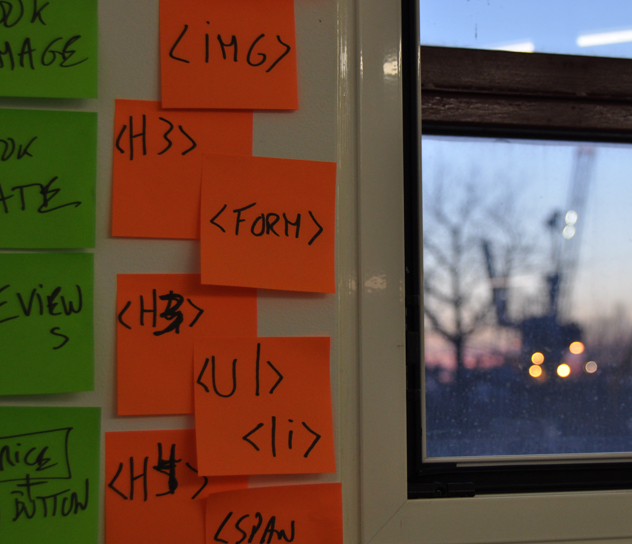 OOK
MAGE
OOK
ATE
EVIEW
S
RICE
+
BUTTON
<iMG>
<H3>
<FORM>
<H3>
<Ul>
<li>
<H4>
<SPAN